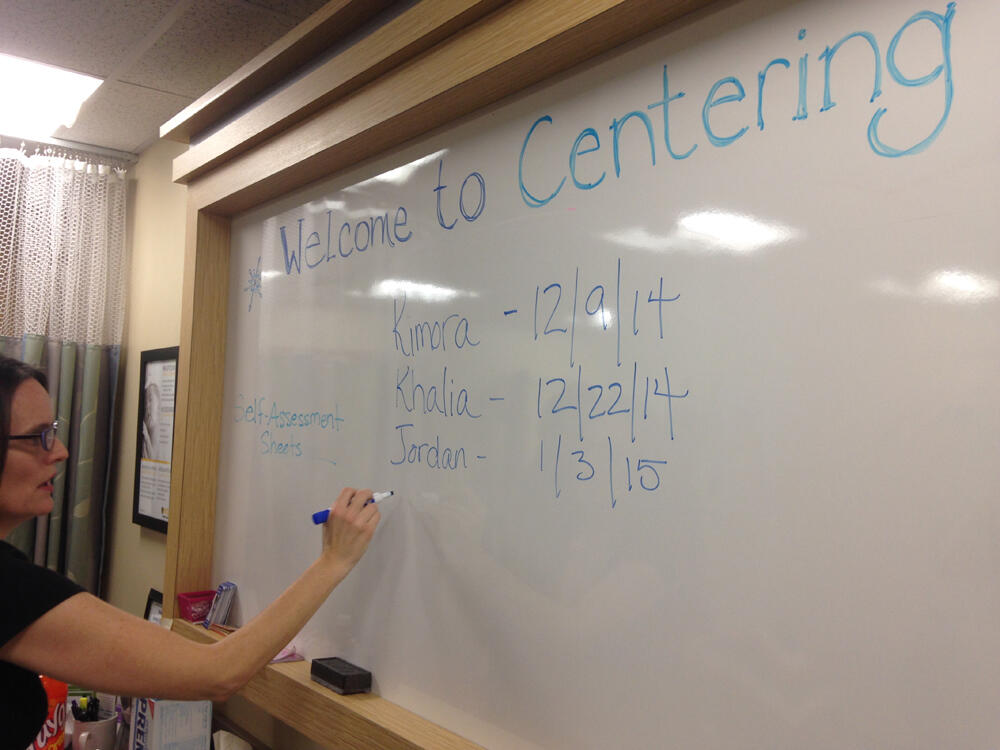 Welcome to Centering
Kimora - 12/9/14
Khalia - 12/22/14
Jordan - 1/3/15
Self-Assessment
Sheets